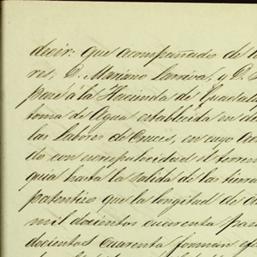 decir: que acompañado de l
res, D. Mariano Larriva, y D.
pasé á la Hacienda de Guadalu
toma de Agua establecida en
las Labores de Cruces, en cuyo
do con escrupulosidad el terren
quia hasta la salida de las tierra
patentico que la longitud de
mil docientas cuarenta
docientas cuarenta forman